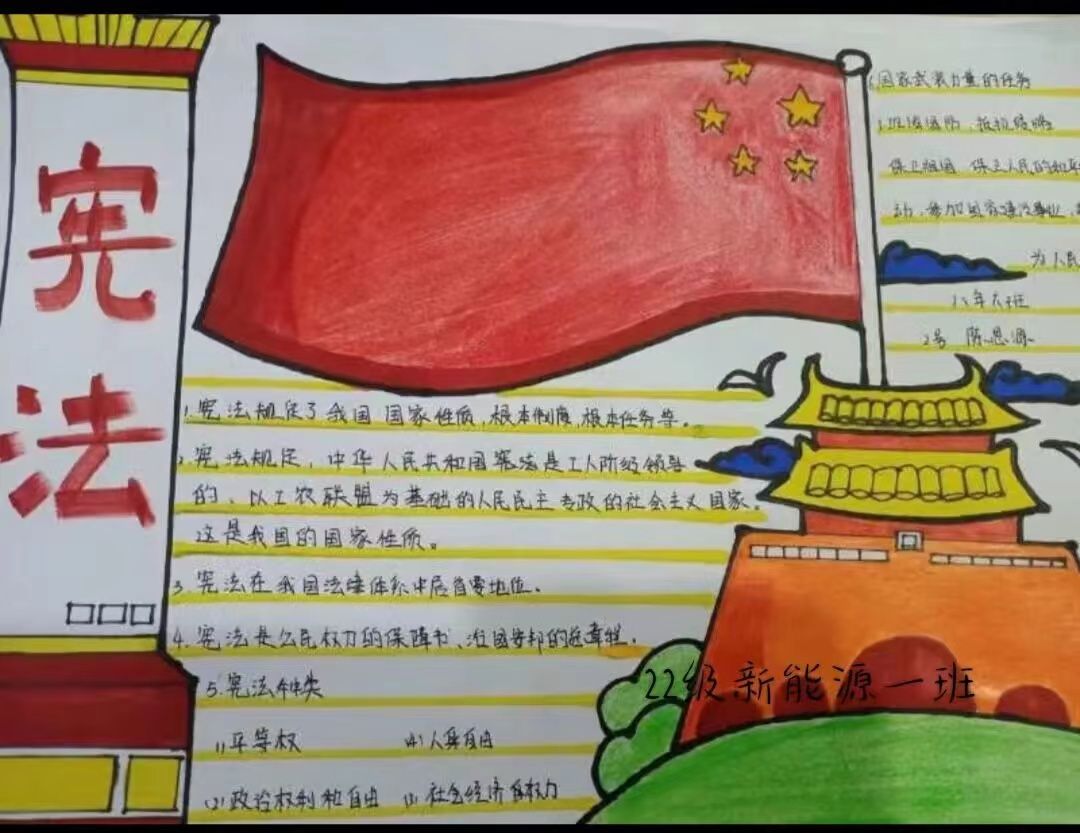 宪法
国家武装力量的任务
保卫祖国、保卫人民的和平
动、参加国家建设事业、
为人民
八年六班
2号 陈恩源
1.宪法规定了我国国家性质、根本制度、根本任务等。
2.宪法规定,中华人民共和国宪法是工人阶级领导
的、以工农联盟为基础的人民民主专政的社会主义国家。
这是我国的国家性质。
3.宪法在我国法律体系中居首要地位。
4.宪法是公民权力的保障书、治国安邦的总章程。
5.宪法
(1)平等权 (4)人身自由
(2)政治权利和自由 社会经济 权力
22级新能源一班